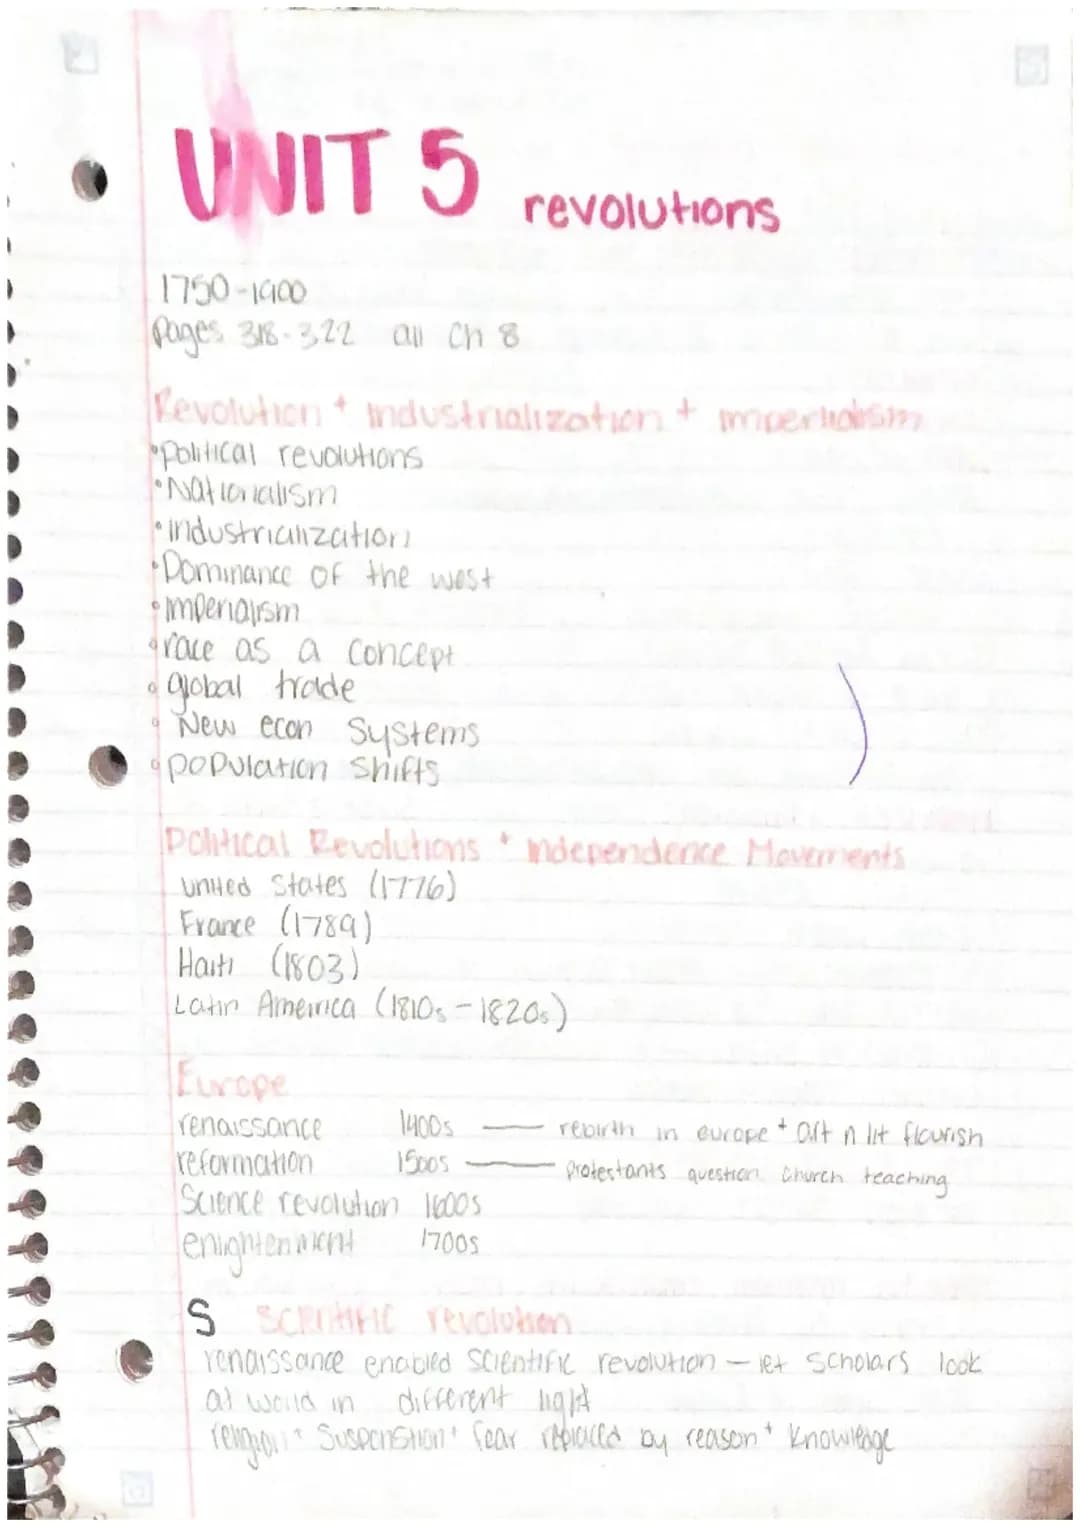 UNIT 5 revolutions
1750-1900
Pages 318-322 all Ch 8
Revolution + industrialization + imperialism
•Political revolutions
•Nationalism
•industrialization
•Dominance of the west
•imperialism
•race as a concept
•global trade
•New econ systems
•population shifts
Political Revolutions + independence Movements
united States (1776)
France (1789)
Haiti (1803)
Latin America (1810s-1820s)
Europe
renaissance 1400s — rebirth in europe + art n lit flourish
reformation 1500s — protestants question church teaching
Science revolution 1600s
enlightenment 1700s
S scientific revolution
renaissance enabled scientific revolution — let scholars look
at world in different light
religion + Suspenstion + fear replaced by reason + knowledge